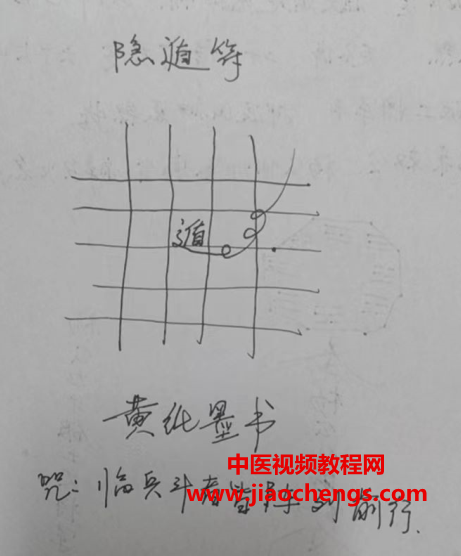 隐遁符
遁
黄纸墨书
中医视频教程网
咒:临兵斗者皆阵列前行.
www.jiaochengs.com